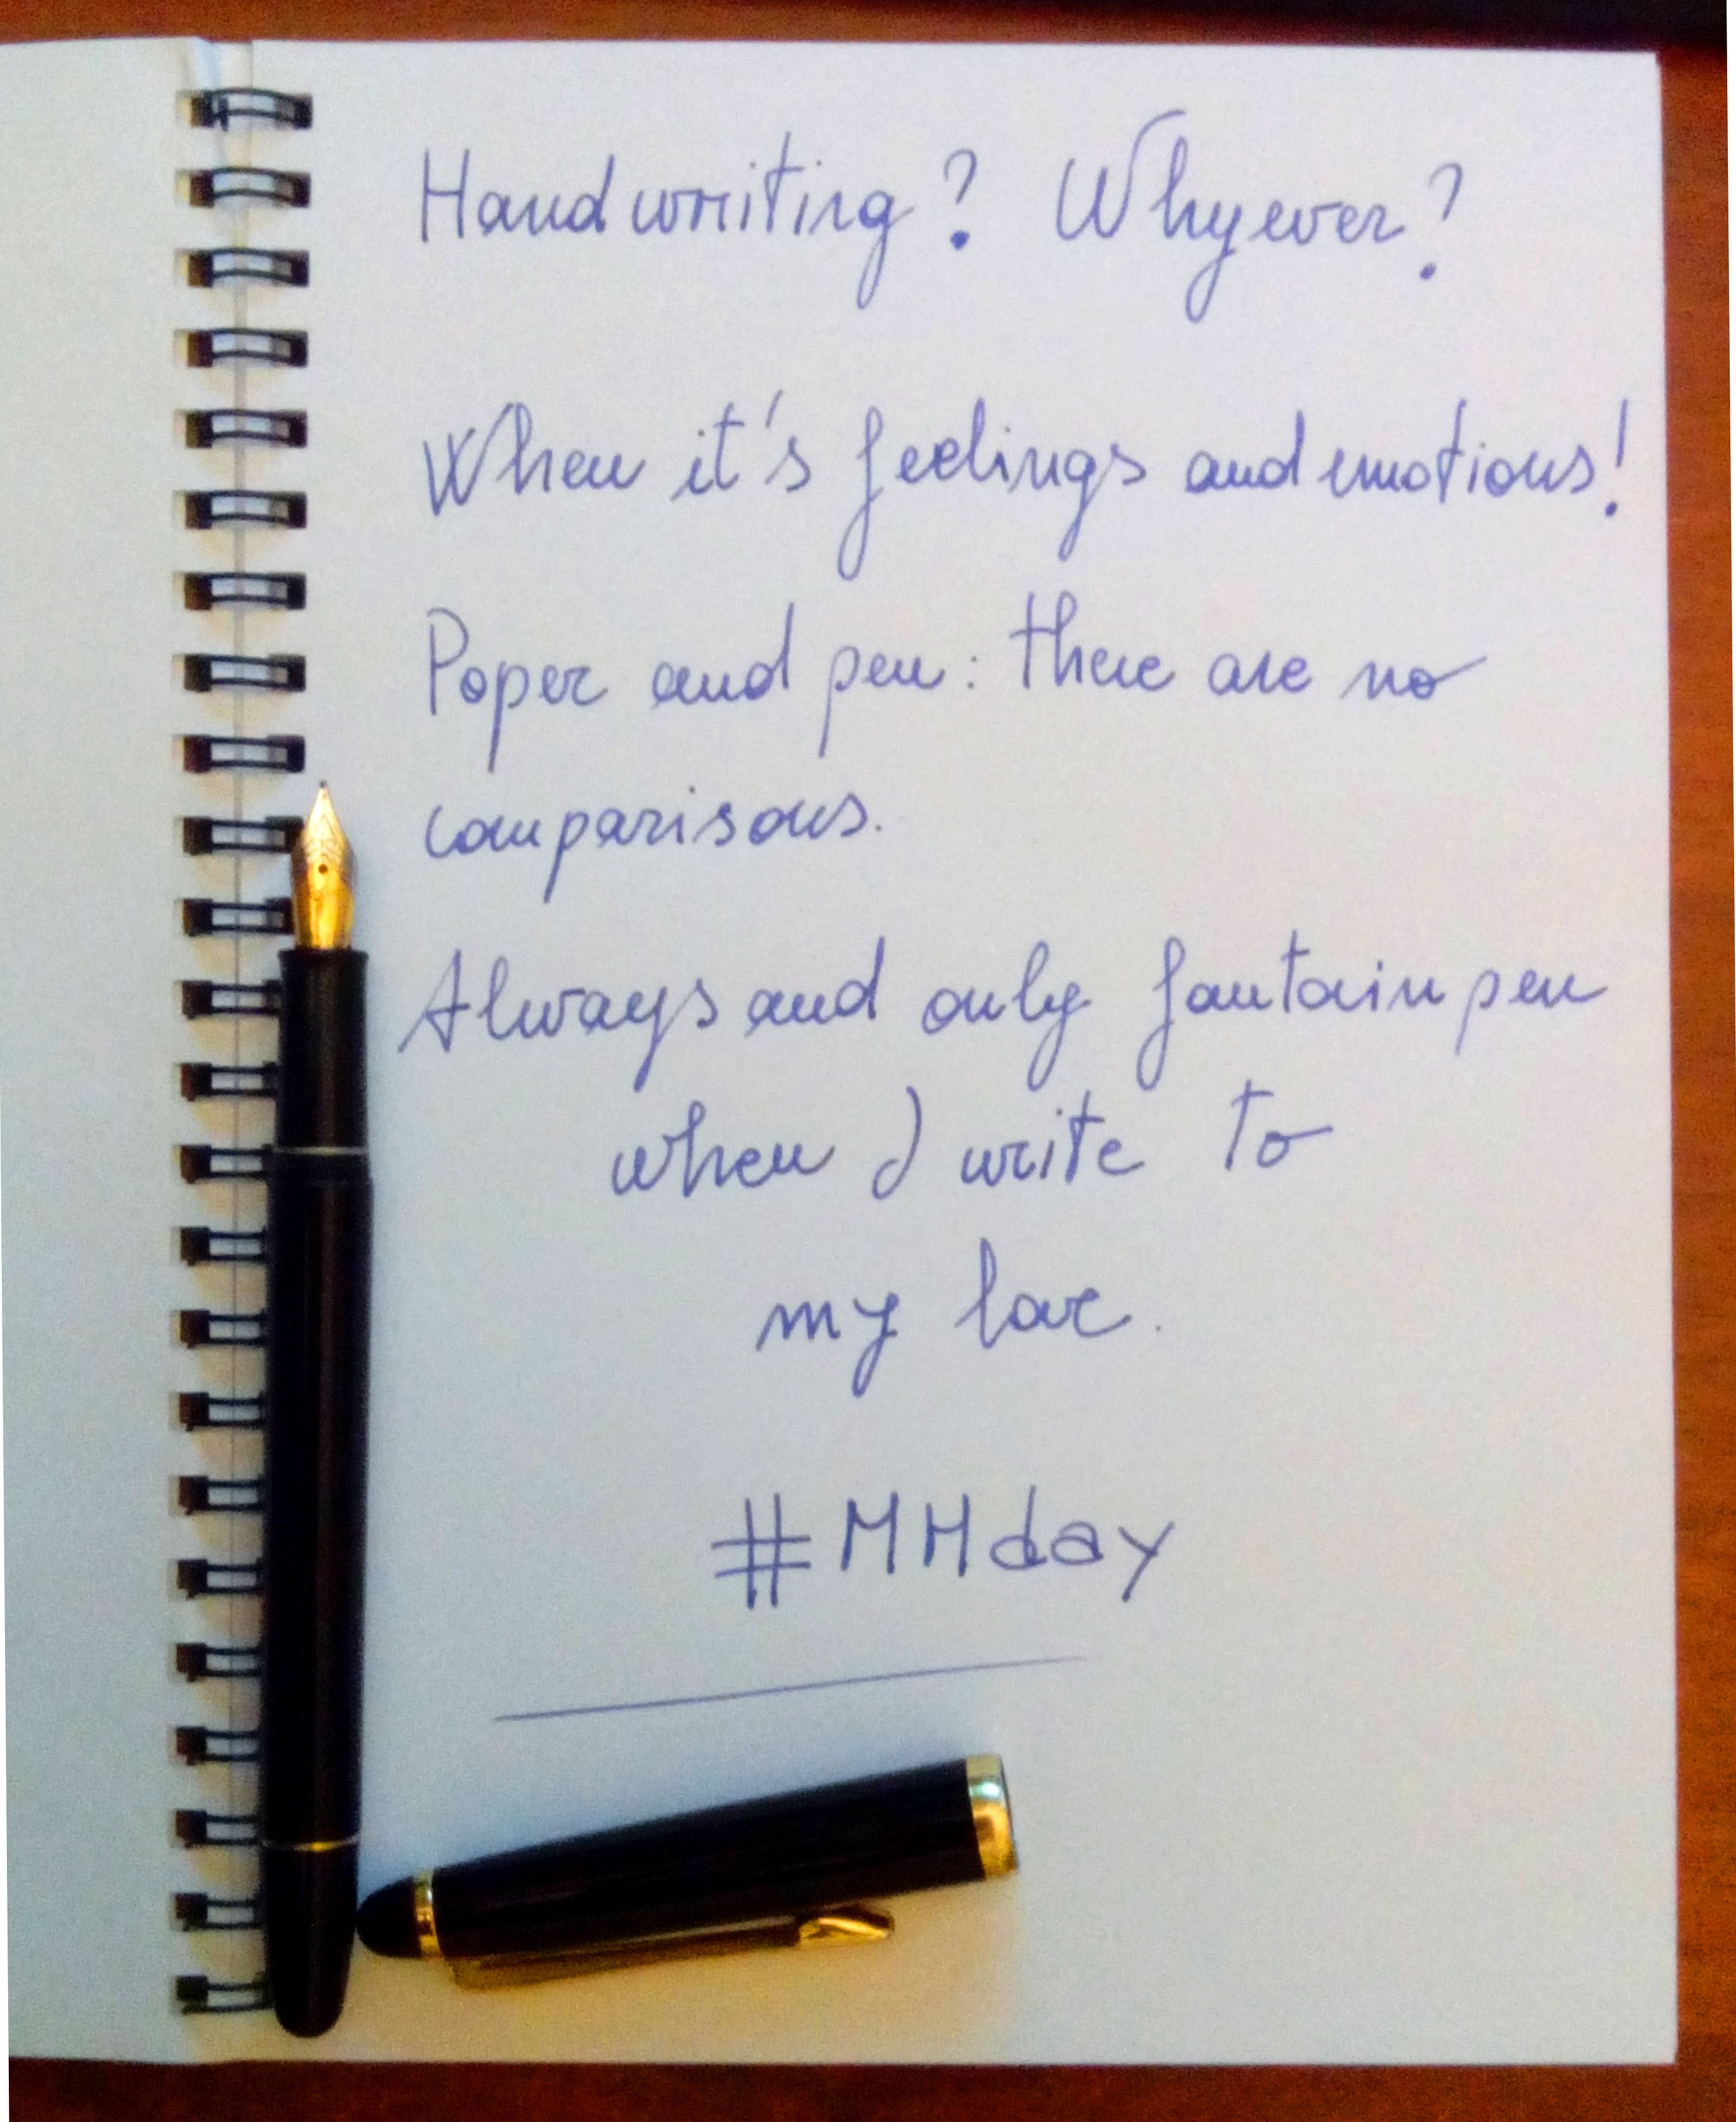 Handwriting? Whyever?
When it's feelings and emotions!
Paper and pen: there are no
comparisons.
Always and only fautain pen
when I write to
my love.
#MHday